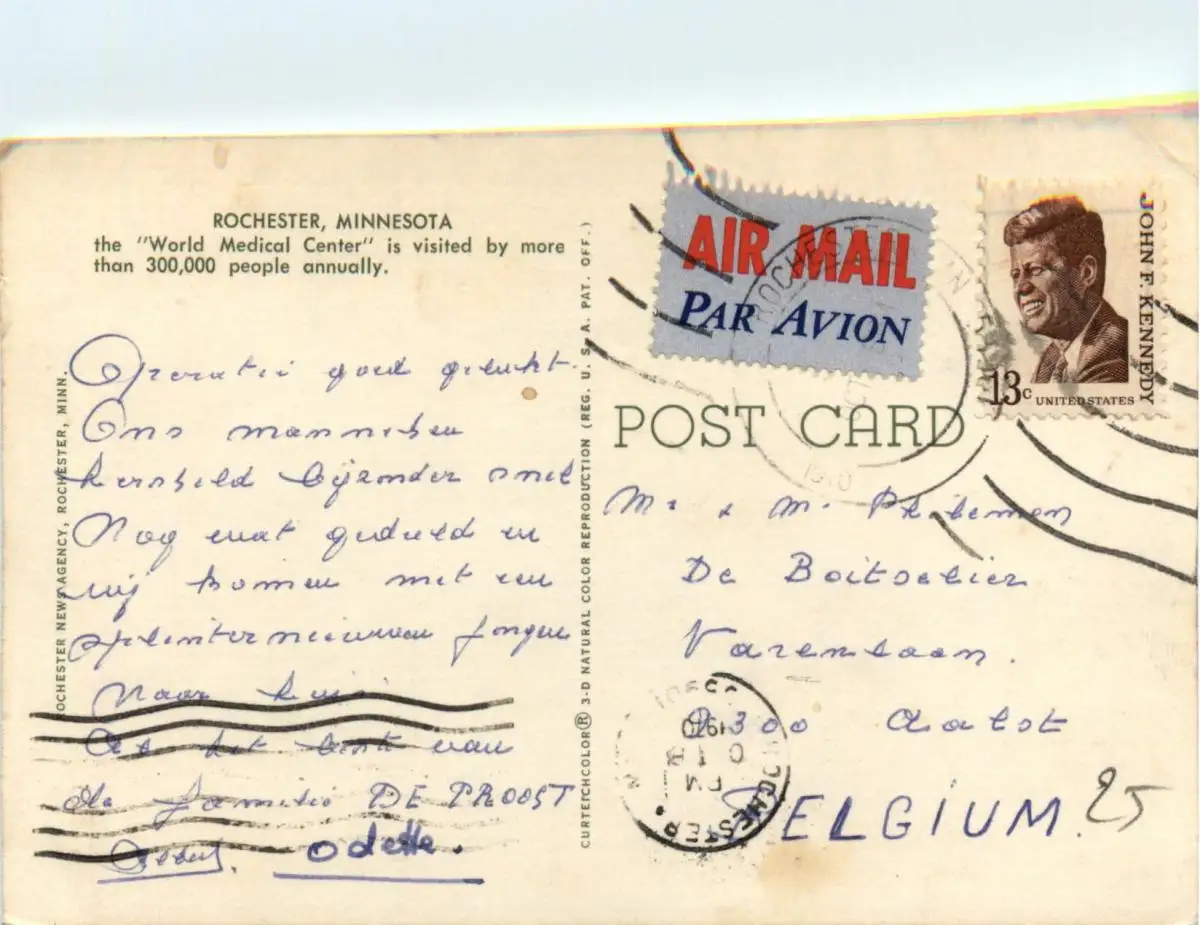 ROCHESTER, MINNESOTA
the "World Medical Center" is visited by more
than 300,000 people annually.
Operatie goed gelukt.
Ons manneken
hersteld bijzonder snel
Nog wat geduld en
wij komen met een
splinternieuwen jongen
naar huis
Al het beste van
de familie DE PROOST
Odette.
ROCHESTER NEWS AGENCY, ROCHESTER, MINN.
CURTEICHCOLOR® 3-D NATURAL COLOR REPRODUCTION (REG. U. S. A. PAT. OFF.)
AIR MAIL
PAR AVION
JOHN F. KENNEDY
13c UNITED STATES
ROCHESTER
1970
POST CARD
Mr & M. Philemon
De Boitselier
Varenlaan.
9300 Aalst
BELGIUM.
25
ROCHESTER
PM
1970